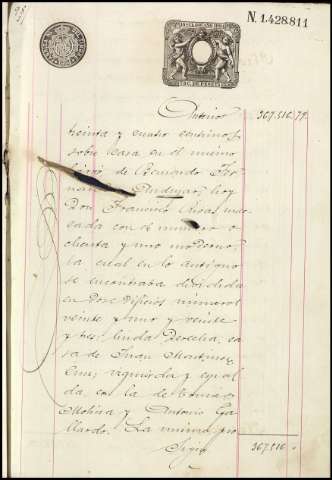 N. 1.428.811
Anterior 367.516.79.
treinta y cuatro centimos
sobre casa en el mismo
de Bernardo Fer
Andujar, hoy
Don Francisco Rivas mar
cada con el numero o
chenta y uno moderno,
la cual en lo antiguo
se encontraba dividida
en dos edificios números
veinte y uno y veinte
y tres; linda derecha, ca
sa de Juan Martinez
Cruz; izquierda y espal
da, con la de Tomas
Molina y Antonio Ga
llardo. La misma pro
367.516.